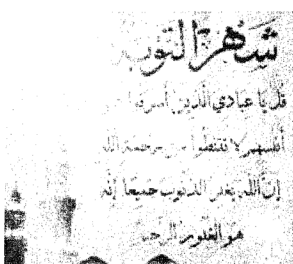 شَهْرُ التَّوْبَة
قل يا عبادي الذين أسرفوا على
أنفسهم لا تقنطوا من رحمة الله
إن الله يغفر الذنوب جميعا إنه
هو الغفور الرحيم